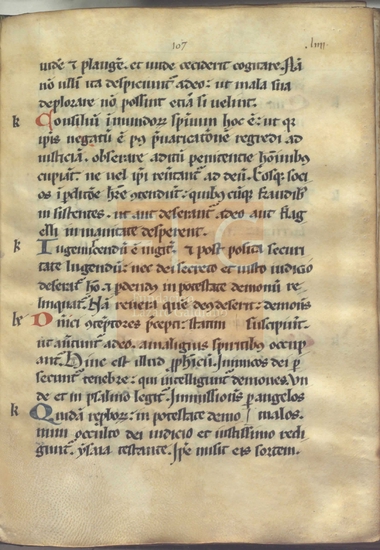 107 .liiij.
uide ⁊ plange᷒. et unde ceciderit cognitare. Nā
nō nlli ita despiciunt᷒ adeo: ut mala sua
deplorare nō possint etiā si uelint.
k Consiliū inmundoꝝ spirituū hoc ē: ut
ipis negatū ē regredi ad
iusticiā. obserare aditū penitentie hominibus
cupiunt: ne uel ipi reuertant᷒ ad deū. Eosq; soci
os
insistentes. ut aut deserant᷒ adeo aut flag
elli inmanitate desperent.
k Ingemiscendū ē igit᷒. et post posita securi
tate lugendū: nec dei secreto et iusto iudicio
deserat᷒ hō. ⁊ pdend᷒ in potestate demonū re
linquat᷒. Nā reuera quē ds deserit: demones
suscipiunt.
ut aut adeo. amalignis spiritibus occup
ant᷒. Hinc est illud pphicū. Inimicos dei p
secunt᷒ tenebre: qui intelligunt᷒ demones. Vn
de et in psalmo legit᷒. Inmissionē p angelos
k Quidā reproboꝝ: in potestate demo malos.
num occulto dei iudicio et iustissimo redi
gunt᷒. ysaia testante. Ipe misit eis sortem.